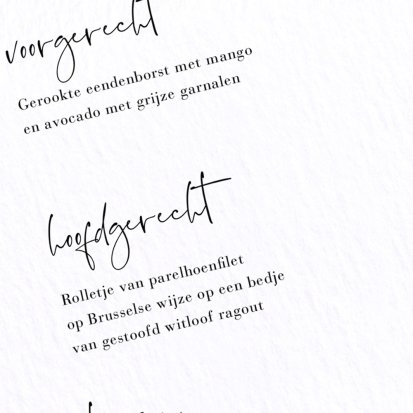 voorgerecht
Gerookte eendenborst met mango
en avocado met grijze garnalen
hoofdgerecht
Rolletje van parelhoenfilet
op Brusselse wijze op een bedje
van gestoofd witloof ragout